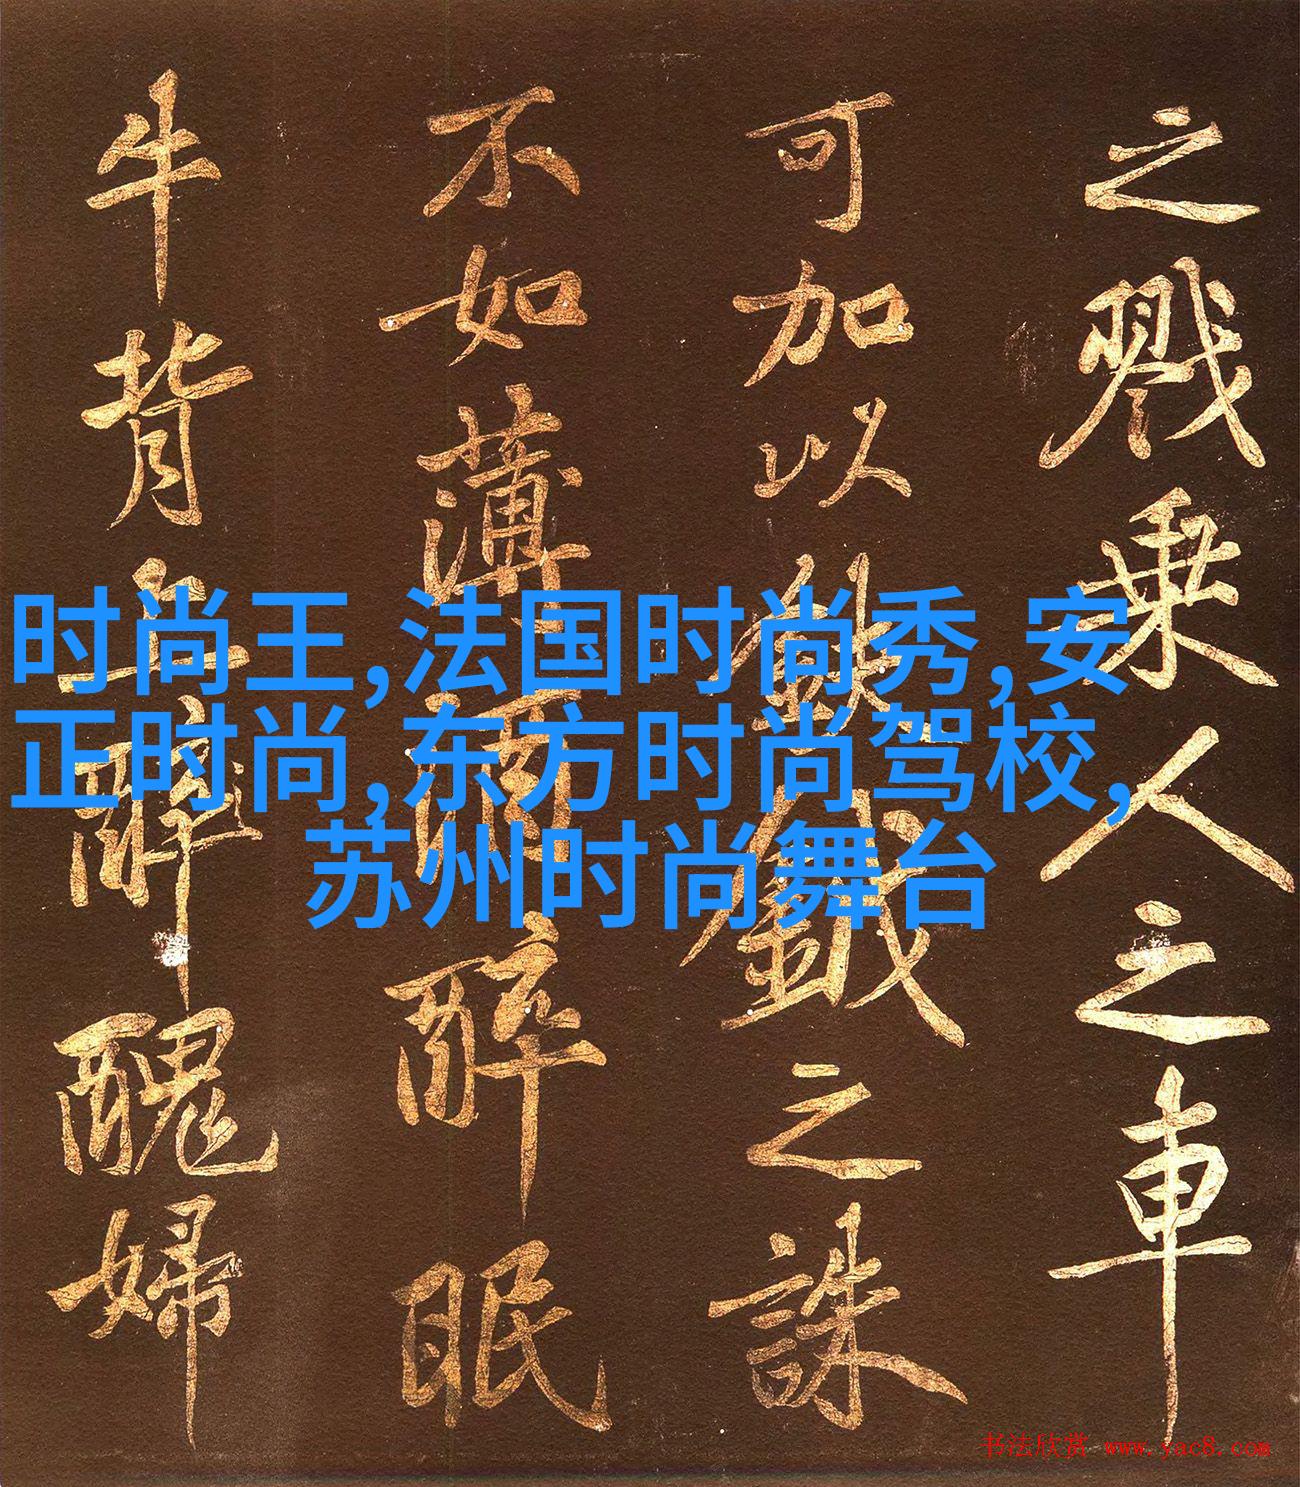 之戮乘人之車
可加以鈇鉞之誅
不如薄酒醉眠
牛背上醉醜婦
时尚王,法国时尚秀,安
正时尚,东方时尚驾校,
苏州时尚舞台
书法欣赏 www.yac8.com